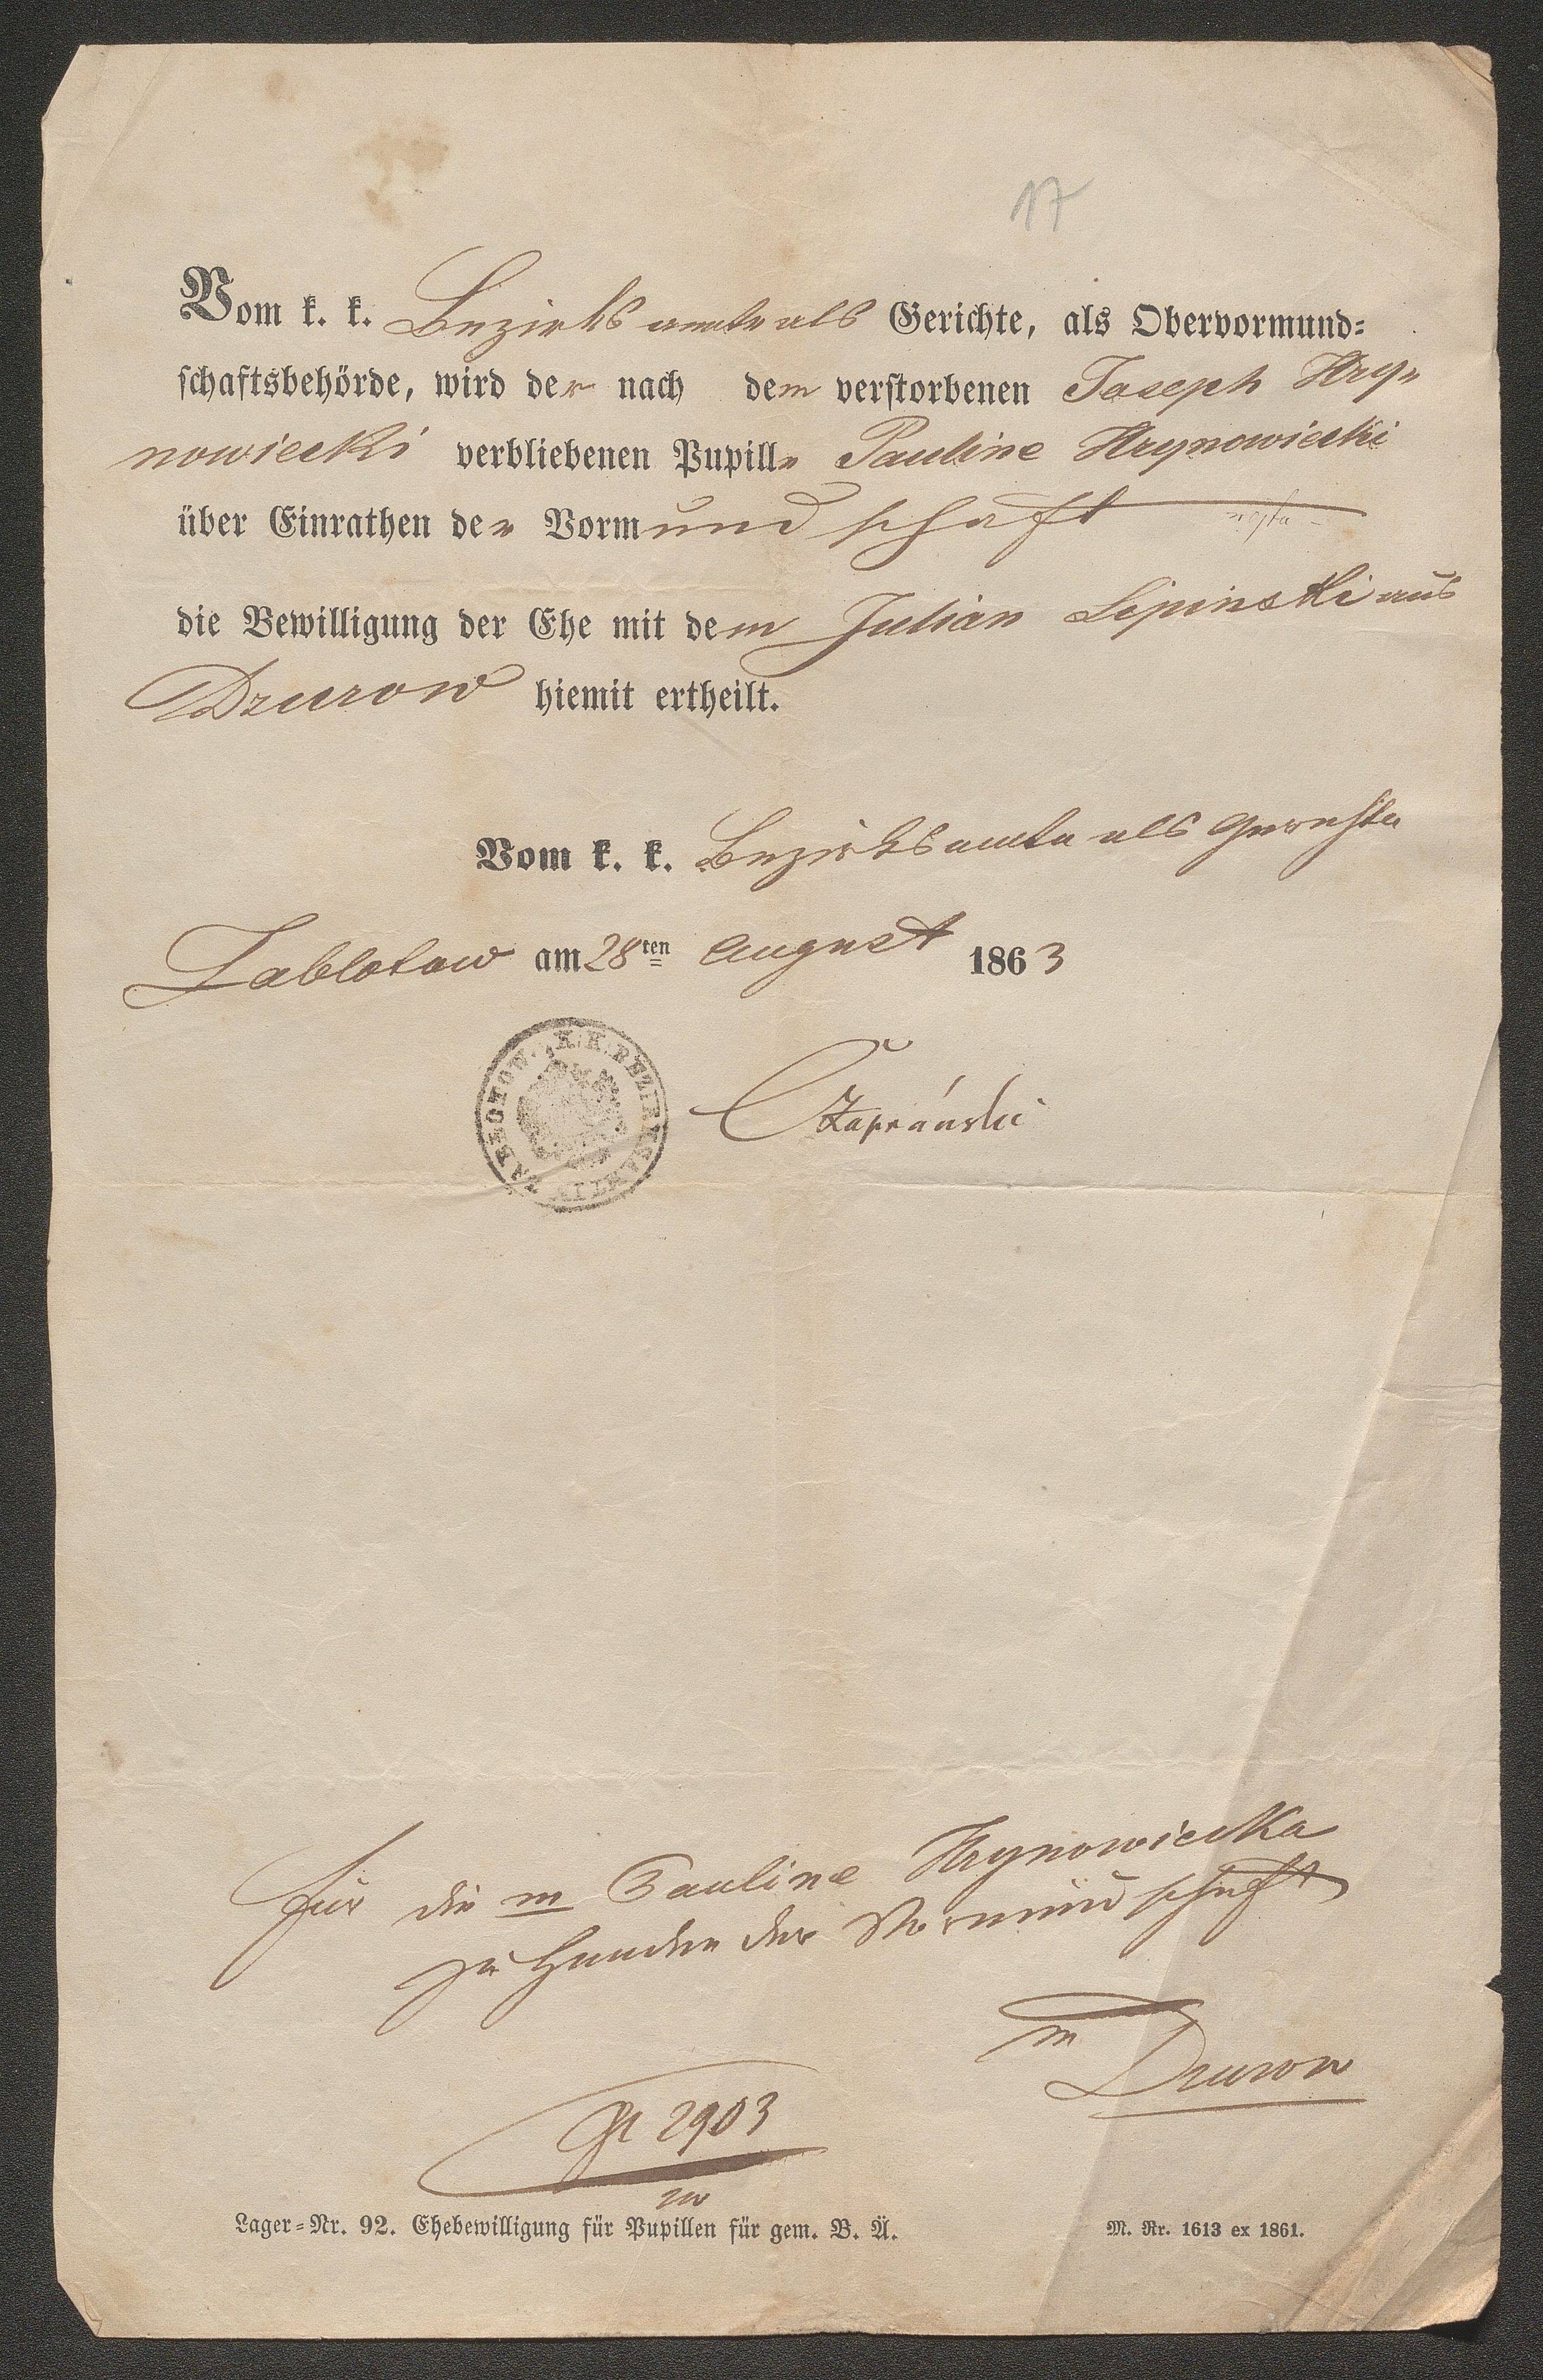 17
Vom k. k. Bezirksamte als Gerichte, als Obervormund-
schaftsbehörde, wird der nach dem verstorbenen Joseph Hry-
nowiecki verbliebenen Pupille Pauline Hrynowiecki
über Einrathen der Vormundschaft
die Bewilligung der Ehe mit dem Julian Lipinski aus
Dzurow hiemit ertheilt.
Vom k. k. Bezirksamte als Gerichte
Zablotow am 28ten August 1863
K. K. BEZIRKSAMT ZABŁOTOW
für die m Pauline Hrynowiecka
zu Handen der Vormundschaft
in
Dzurow
2903
Lager-Nr. 92. Ehebewilligung für Pupillen für gem. B. Ä.
M. Nr. 1613 ex 1861.